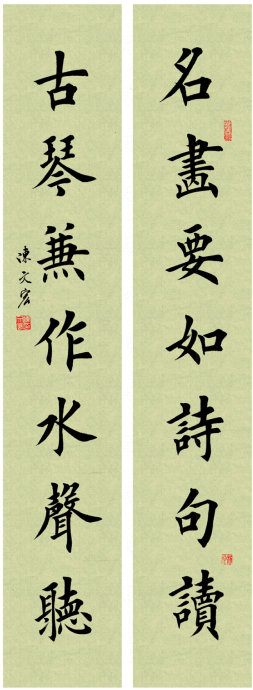 名畫要如詩句讀
古琴兼作水聲聽
陳文宏